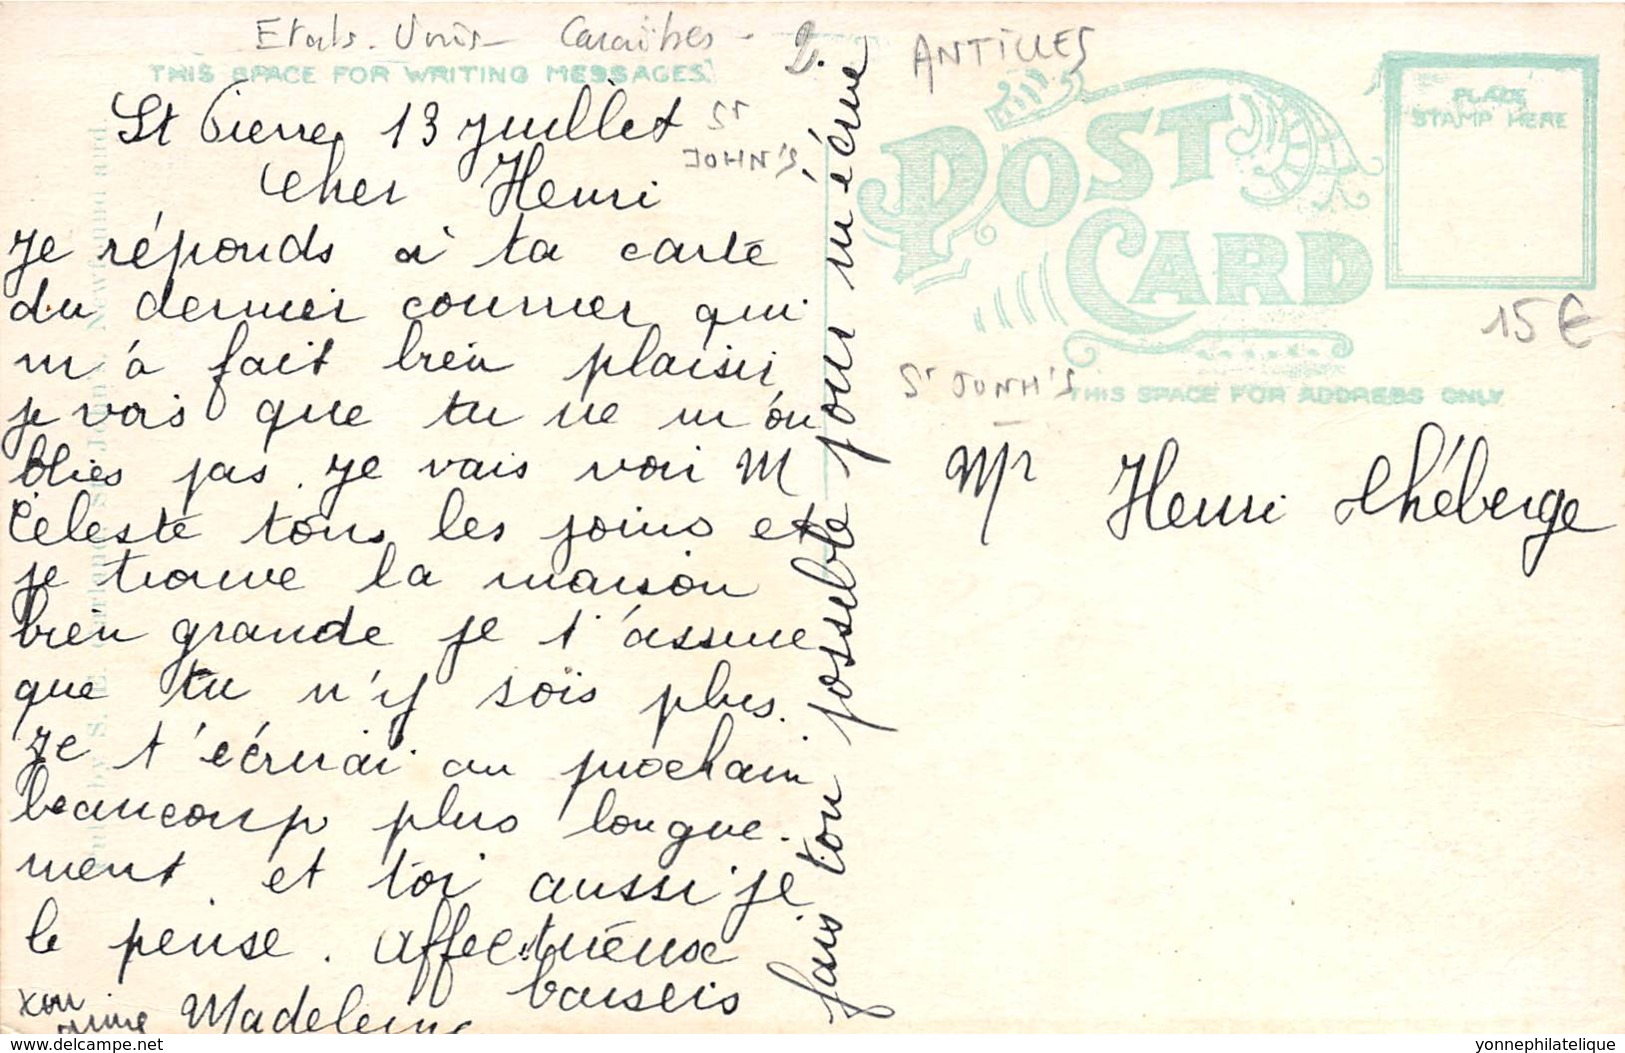 Etats-Unis - Caraibes -
ANTILLES
THIS SPACE FOR WRITING MESSAGES.
St Pierre 13 juillet
ST
JOHN'S
Cher Henri
Je réponds à ta carte
du dernier courrier qui
m'à fait bien plaisir
je vois que tu ne m'ou
blies pas. Je vais voir M
Céleste tous les joins et
je trouve la maison
bien grande je t'assure
que tu n'y sois plus.
Je t'écrirai au prochain
beaucoup plus longue-
ment et toi aussi je
le pense. Affectueux
baisers
Madeleine
fais ton possible pour m'écrire
POST
CARD
PLACE
STAMP HERE
15€
ST JONH'S
THIS SPACE FOR ADDRESS ONLY
Mr Henri Théberge
delcampe.net
yonnephilatelique